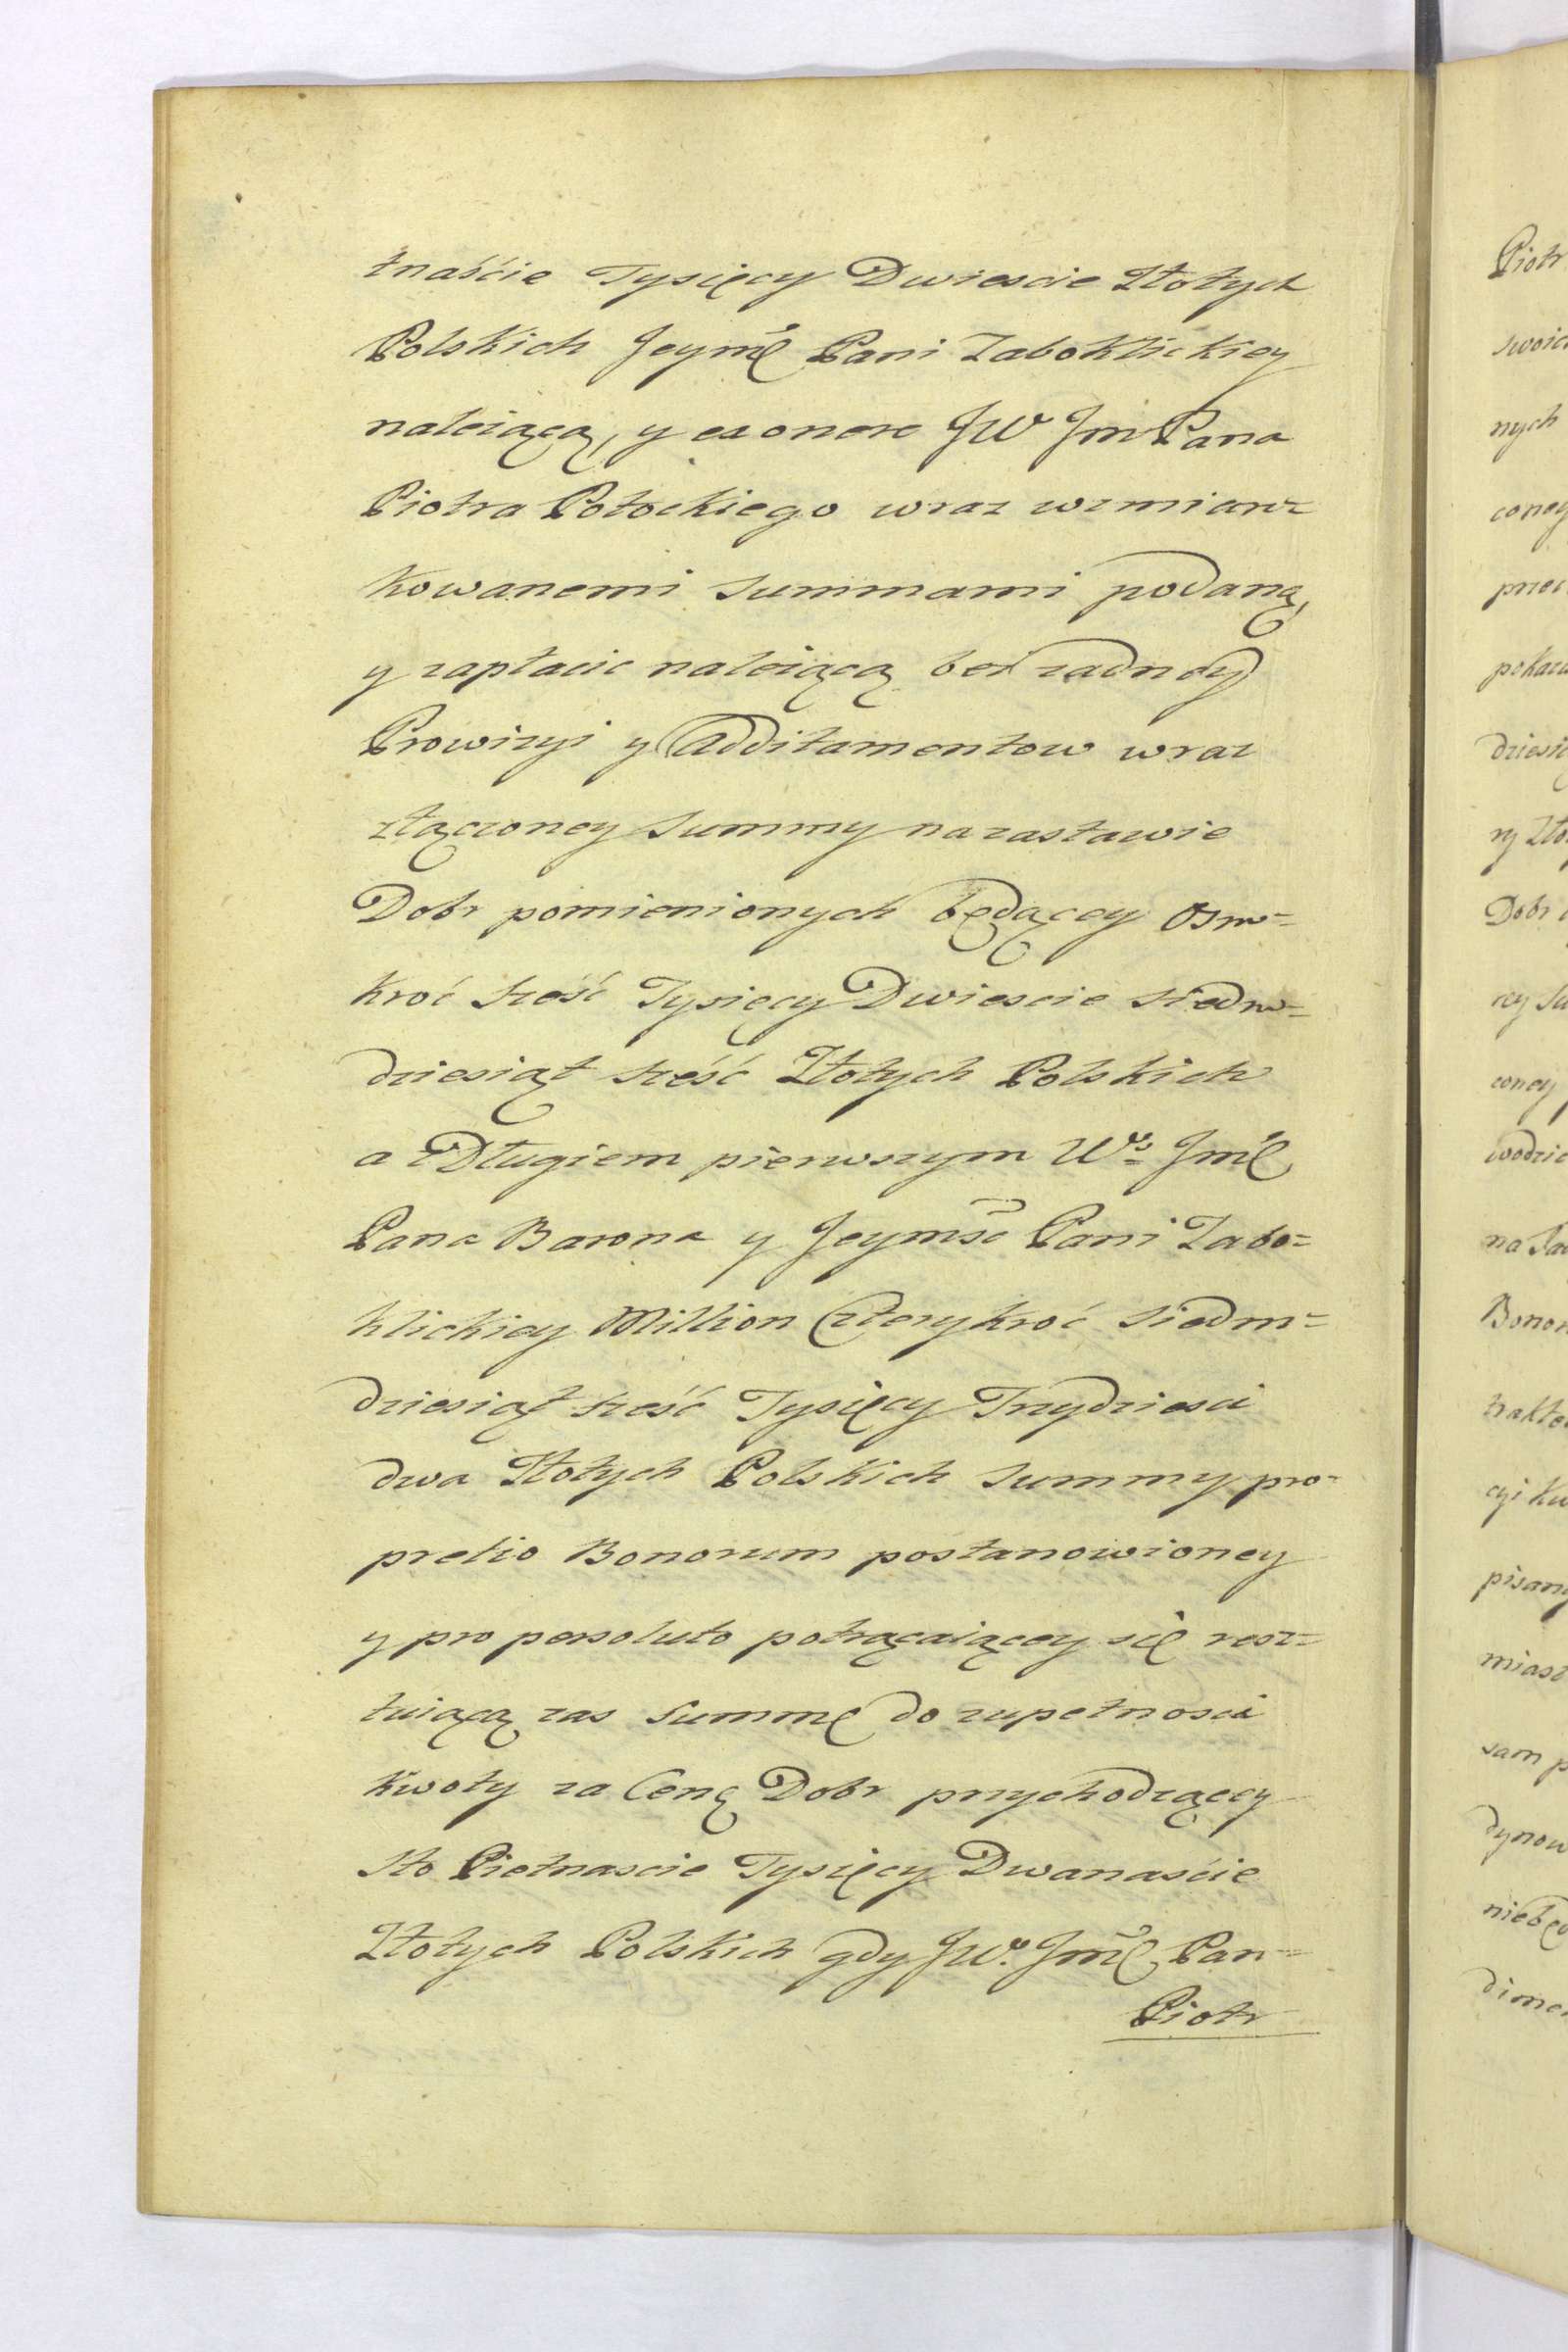 tnaście Tysięcy Dwiescie Złotych
Polskich Jeymć Pani Zabokłickiey
należącą, y ex onere JW Jm Pana
Piotra Potockiego wraz wzmian=
kowanemi summami podaną,
y zapłacic należącą bez zadney
Prowizyi y Additamentow wraz
złączoney Summy na zastawie
Dobr pomienionych będącey Osm=
kroć sześć Tysięcy Dwiescie siedm=
dziesiąt sześć Złotych Polskich
a z Długiem pierwszym Wo Jmć
Pana Barona y Jeymść Pani Zabo=
klickiey Million Czterykroć siedm=
dziesiąt sześć Tysięcy Trzydziesci
dwa Złotych Polskich Summy pro=
pretio Bonorum postanowioney
y pro persoluto potrącaiącey się resz=
tuiącą zas Summę do zupełnosci
kwoty za Cenę Dobr przychodzącey
sto Pietnascie Tysięcy Dwanaście
Złotych Polskich gdy JWo. Jmć Pan=
Piotr
Piotr
swoich
nych
coney
przez
pokaza
dziesią
ry Zło
Dobr
cey Su
coney
wodzic
na
Bonor
trakto
cyi kw
pisany
miast
sam p
dynow
niebęd
dimen